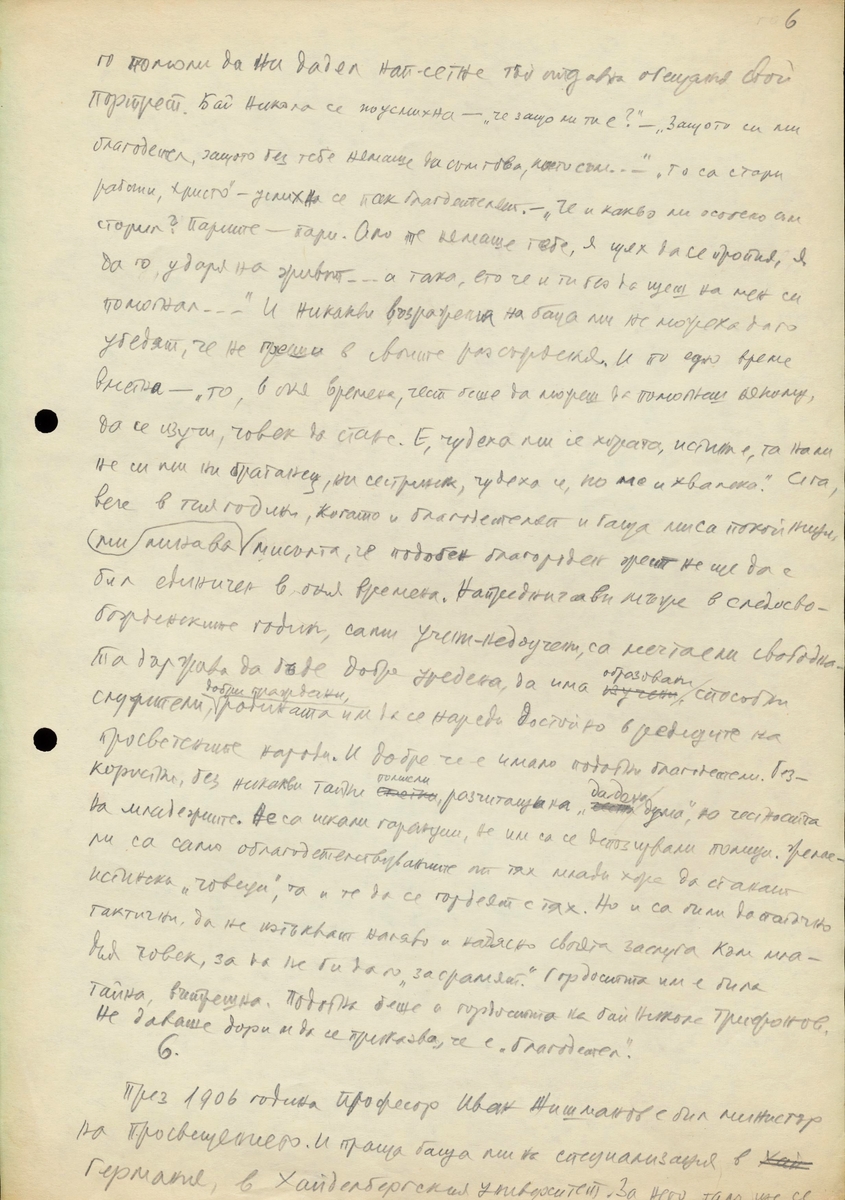 6
го помоли да ни дадел най-сетне тъй отдавна обещания свой
портрет. Бай Никола се поусмихна — „че защо ли ти е?" — „Защото си ми
благодетел, защото без тебе нямаше да съм това, което съм..." — „То са стари
работи, Христо" — усмихна се пак благодетелят. — „Че и какво ли особено съм
сторил? Парите — пари. Ако те нямаше тебе, я щях да се пропия, я
да го ударя на живот... а така, ето че и ти без да щеш на мен си
помогнал..." И никакви възражения на баща ми не можеха да го
убедят, че не греши в своите разсъждения. И по едно време
вметна — „то, в ония времена, чест беше да можеш да помогнеш някому,
да се изучи, човек да стане. Е, чудеха ми се хората, истина е, та нали
не си ми ни братанец, ни сестриник, чудеха се, но ме и хвалеха." Сега,
вече в тия години, когато и благодетелят и баща ми са покойници,
ми минава мисълта, че подобен благороден жест не ще да е
бил единичен в ония времена. Напредничави мъже в следосво-
божденските години, сами учени-недоучени, са мечтаели свободна-
та държава да бъде добре уредена, да има образовани способни
служители, добри граждани, родината им да се нареди достойно в редиците на
просветените народи. И добре че е имало подобни благодетели. Без-
користни, без никакви тайни помисли, разчитащи на „дадена дума", на честността
на младежите. Не са искали гаранции, не им са се подписвали полици. Желае-
ли са само облагодетелствуваните от тях млади хора да станат
истински „човеци", та и те да се гордеят с тях. Но и са били достатъчно
тактични, да не изтъкват наляво и надясно своята заслуга към мла-
дия човек, за да не би да го „засрамят." Гордостта им е била
тайна, вътрешна. Подобна беше и гордостта на бай Никола Трифонов.
Не даваше дори и да се приказва, че е „благодетел".
6.
През 1906 година професор Иван Шишманов е бил министър
на Просвещението. И праща баща ми на специализация в
Германия, в Хайделбергския университет. За него